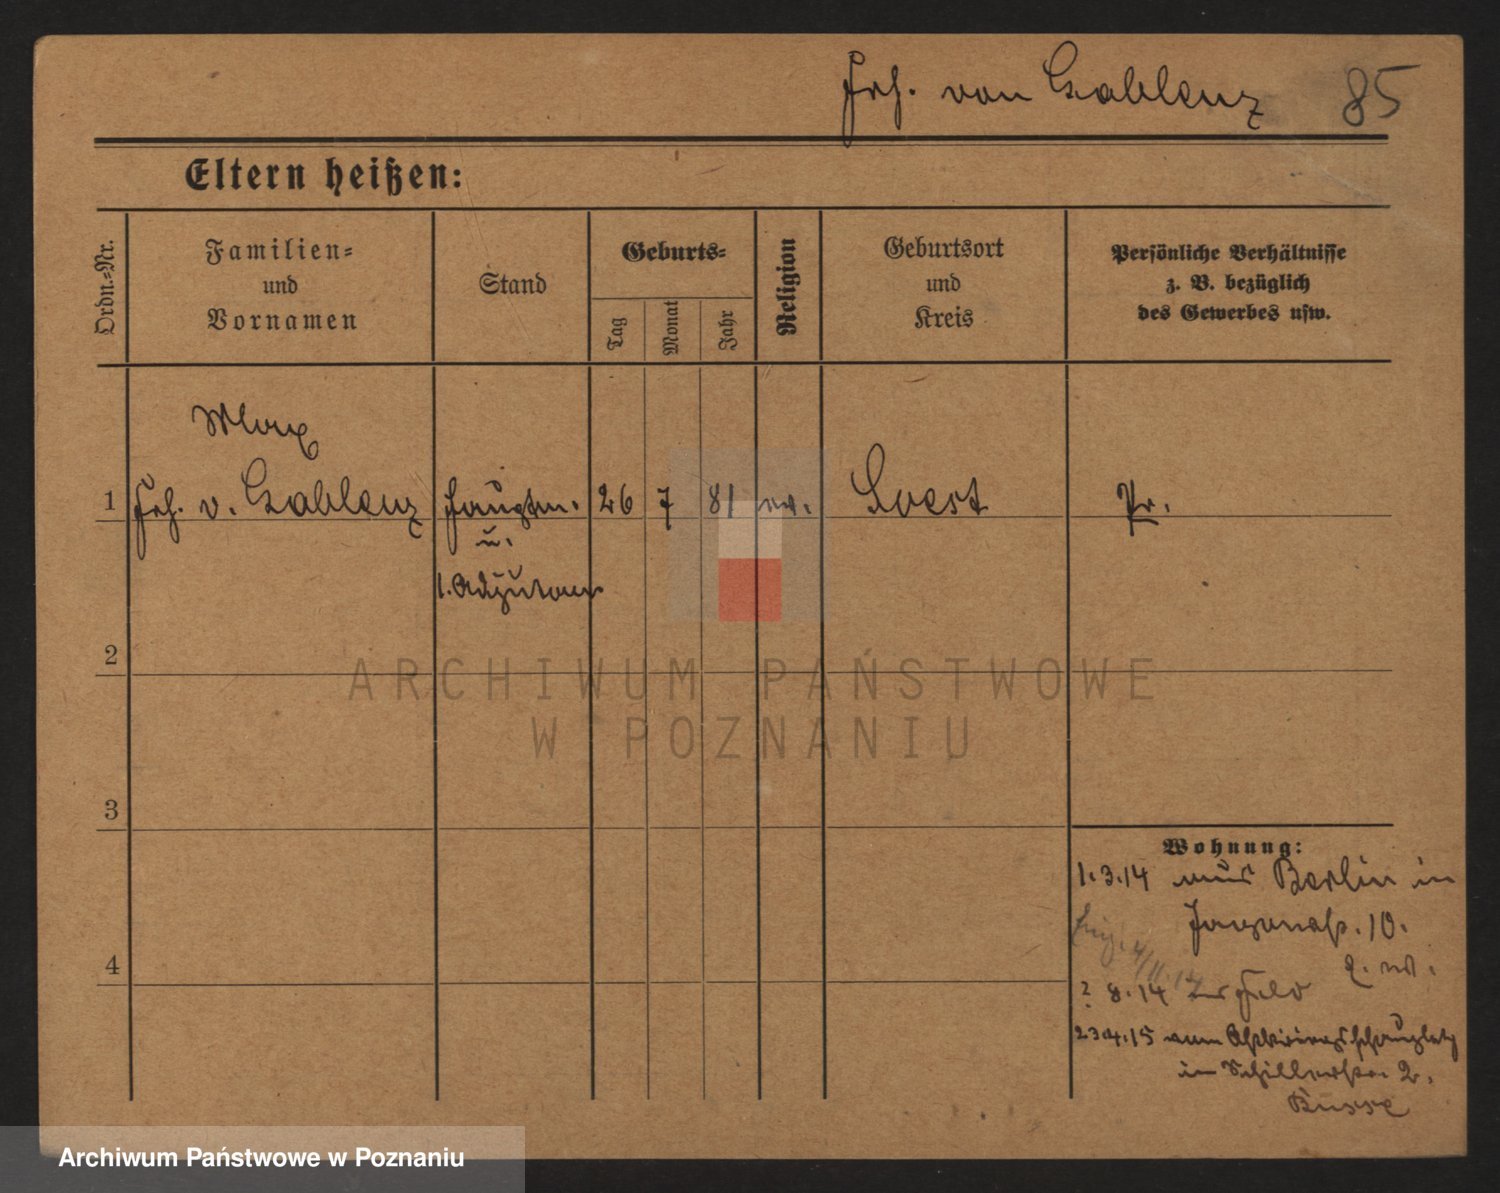 Frh. von Gablenz 85
Eltern heißen:
Ordn.-Nr.
Familien-
und
Vornamen
Stand
Geburts-
Tag
Monat
Jahr
Religion
Geburtsort
und
Kreis
Persönliche Verhältnisse
z. B. bezüglich
des Gewerbes usw.
Max
1 Frh. v. Gablenz Hauptm. 26 7 81 ev. Soest Pr.
u.
1. Adjutant
2
3
4
Wohnung:
1.3.14 aus Berlin in
10.
? 8.14 ins Feld
23.4.15 vom
in Schillerstr. 2.
Busse
ARCHIWUM PAŃSTWOWE
W POZNANIU
Archiwum Państwowe w Poznaniu